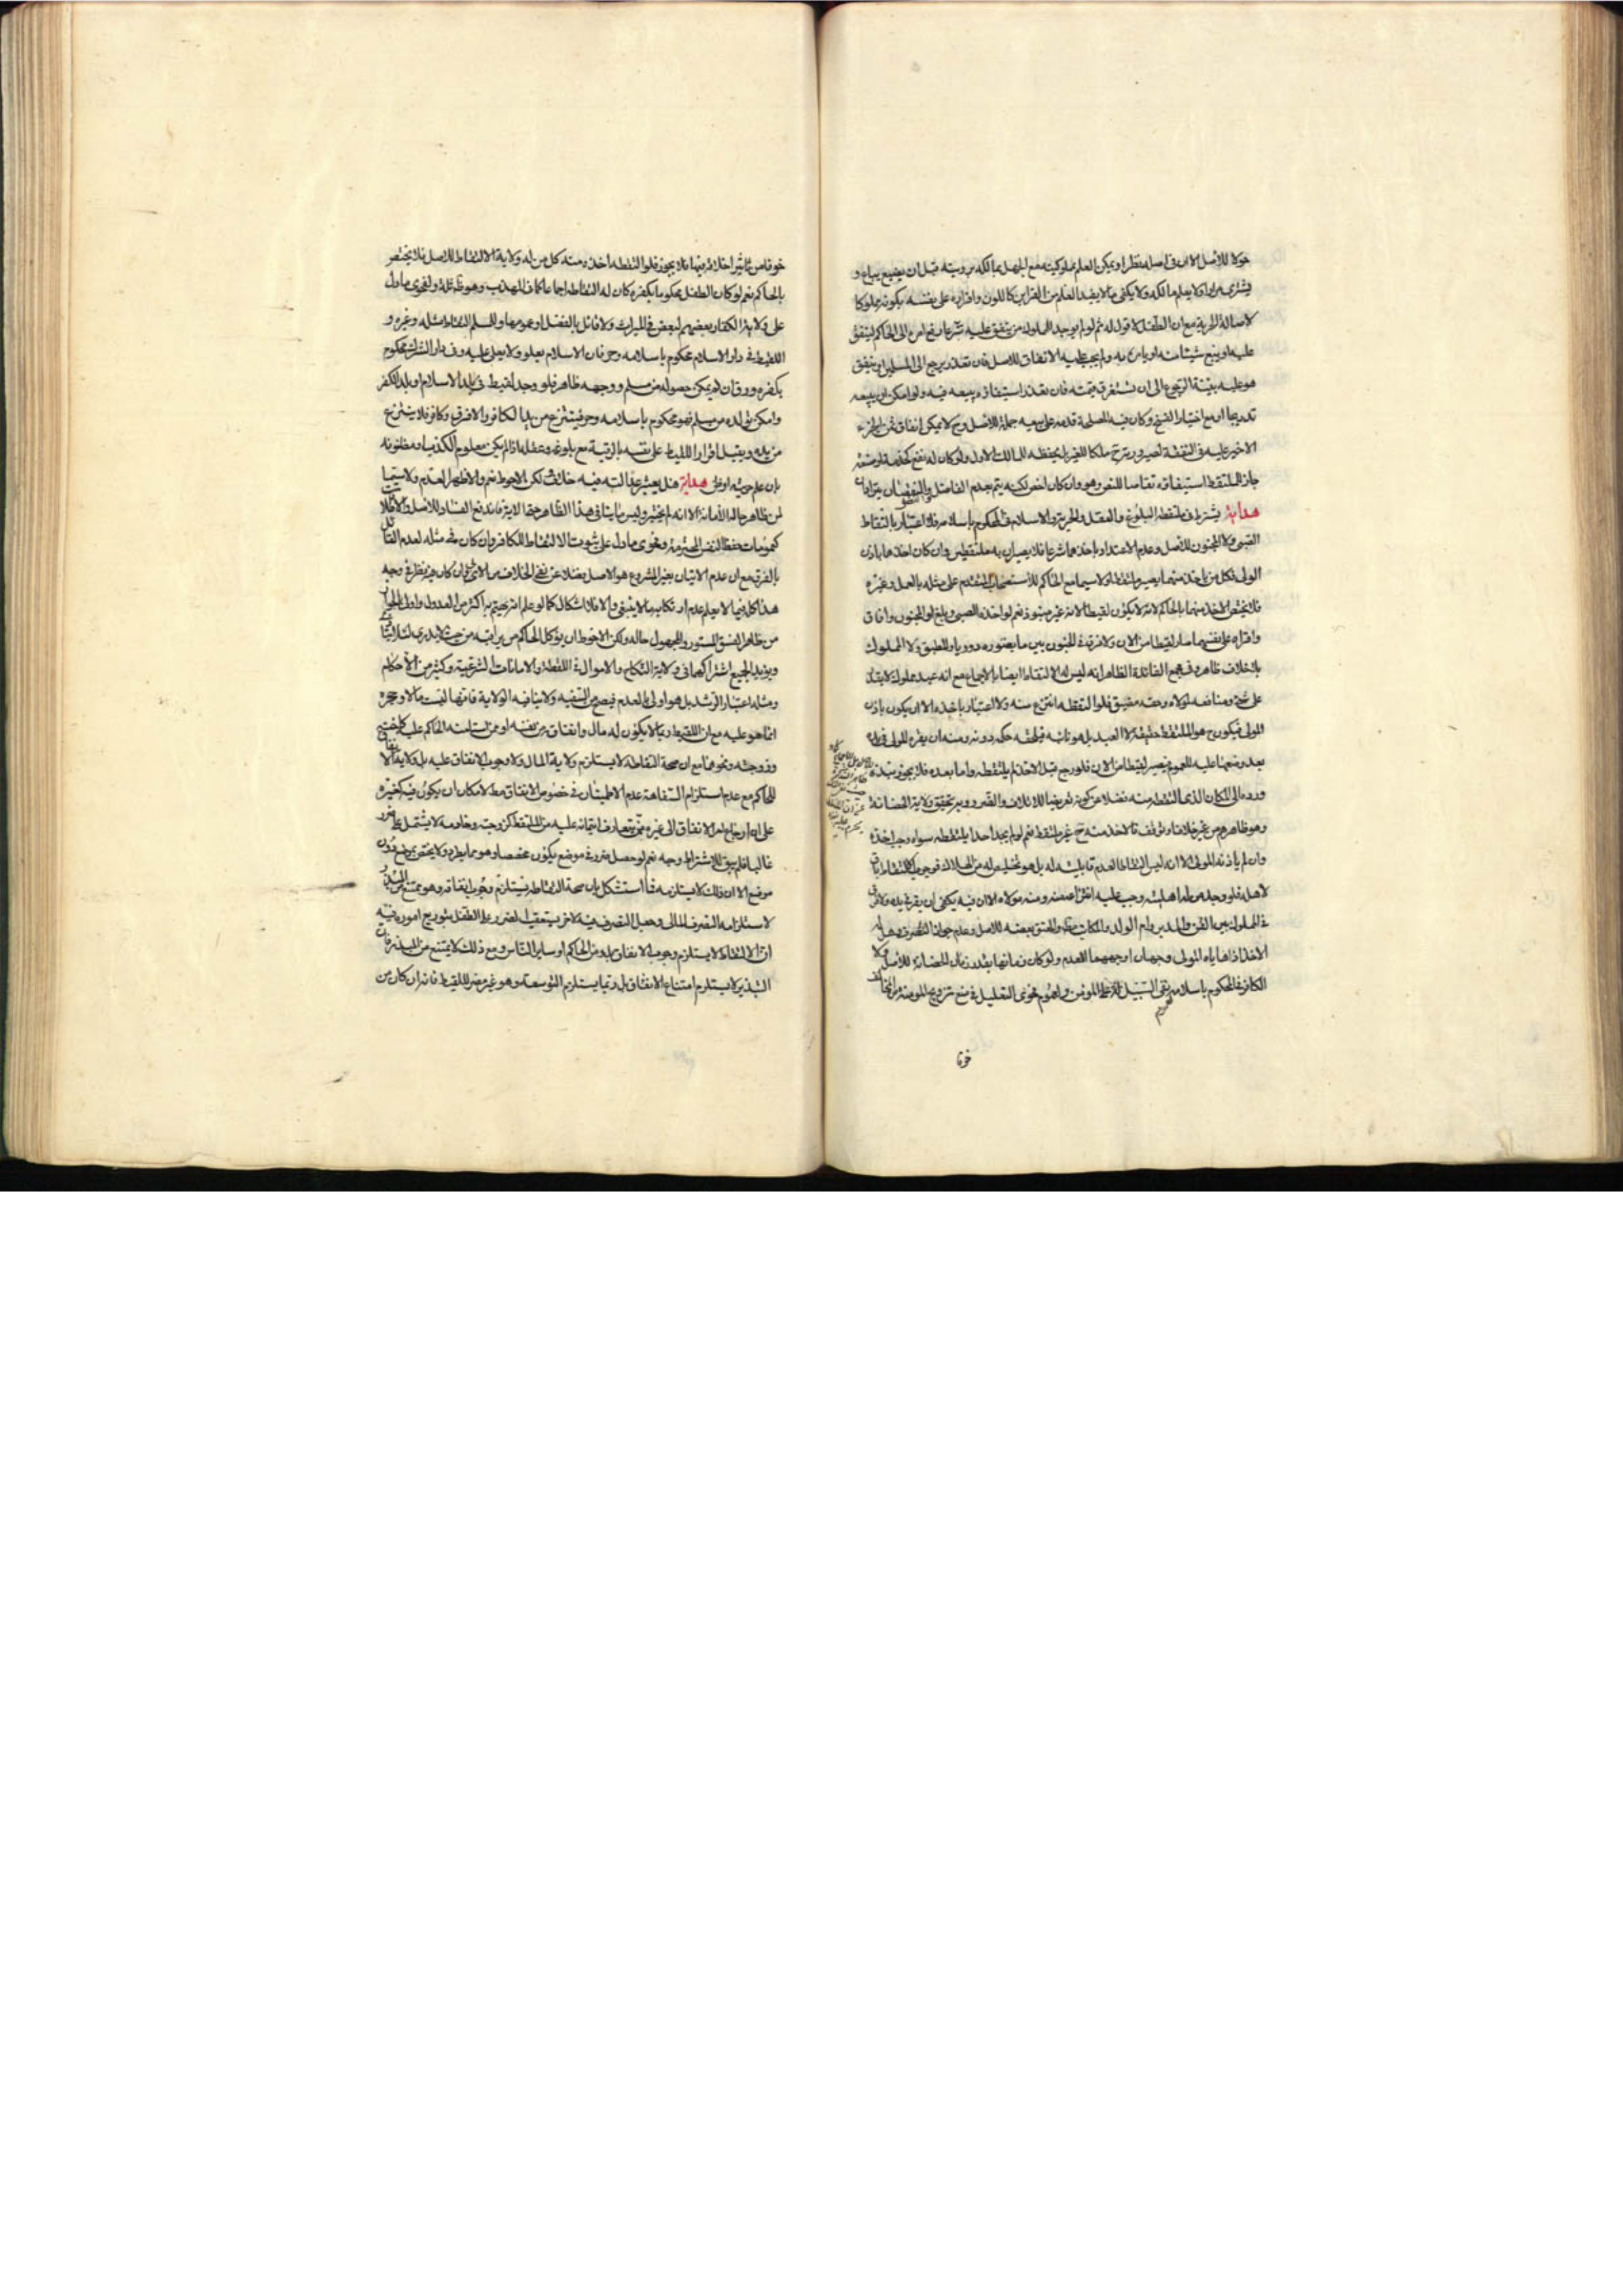 للأصل الا ان في اصله نظرا ويمكن العلم بملوكيته مع الجهل بمالكه برؤيته قبل ان يضيع يباع و
يشترى مرارا ولا يعلم مالكه ولا يكفى ما لا يفيد العلم من القراين كاللون واقراره على نفسه بكونه مملوكا
لاصالة الحرية مع ان الطفل لا قول له ثم لو لم يوجد للمملوك من ينفق عليه شرعا رفع امره الى الحاكم لينفق
عليه او يبيع شيئا منه او يامره به ولم يجب عليه الانفاق للاصل فان تعذر يرجع الى المسلمين او ينفق
هو عليه بنية الرجوع الى ان تستغرق قيمته فان تعذر استيفاؤه بيعه فيه ولو امكن ان يبيعه
تدريجا او مع اختيار الفسخ وكان فيه المصلحة قدمه على بيعه جملة للاصل و ح لا يمكن انفاق ثمن الجزء
الاخير عليه في النفقة لصيرورته ح ملكا للغير بل يحفظه للمالك الاول ولو كان له نفع كخدمة او صنعة
جاز للملتقط استيفاؤه تقاصا للنص وهو وان كان اخص لكنه يتم بعدم الفاصل
هداية يشترط في ملتقطه البلوغ والعقل والحرية والاسلام في المحكوم باسلامه فلا اعتبار بالتقاط
الصبى ولا المجنون للأصل وعدم الاعتداد باخذهما شرعا فلا يصيران به ملتقطين وان كان اخذهما باذن
الولى فكل من ياخذ منهما يصير ملتقطا ولا سيما مع الحاكم للاستصحاب المقدم على مثله بالعمل وغيره
فلا يختص الاخذ منهما بالحاكم لانه لا يكون لقيطا لانه غير منبوذ نعم لو اخذه الصبى وبلغ او المجنون وافاق
واقراه على نفسهما صار لقيطا من الان ولا فرق في المجنون بين ما يعتوره دوريا والمطبق ولا المملوك
بلا خلاف ظاهر وفي مجمع الفائدة الظاهر انه ليس له الالتقاط ايضا بالاجماع مع انه عبد مملوك لا يقدر
على شيء ومنافعه لمولاه وحقه مضيق فلو التقطه انتزع منه ولا اعتبار باخذه الا ان يكون باذن
المولى فيكون ح هو الملتقط حقيقة لا العبد بل هو نائبه فيلحقه حكمه دونه ومنه ان يقره المولى في يده
بعد وضعهما عليه للعموم فيصير لقيطا من الان فلو رجع قبل الاخذ لم يلتقطه واما بعده فلا يجوز نبذه
ورده الى المكان الذى التقطه منه فضلا عن كونه تعريضا للاتلاف والضرر وبه تحقيق ولاية الحضانة
وهو ظاهرهم من غير خلاف او توقف فالاخذ منه ح غير ملتقط نعم لو لم يجد احدا يلتقطه سواه وجب اخذه
وان لم ياذنه المولى الا انه ليس التقاطا لعدم قابليته له بل هو تخليص له من الهلاك فوجب
لاهله فلو وجد من له اهليته وجب عليه انتزاعه منه ومن مولاه الا ان فيه يكفى ان يقره في يده ولا فرق
في المملوك بين القن والمدبر وام الولد والمكاتب والمعتق بعضه للاصل وعدم جواز التصرف وهل له
الاخذ اذا هاياه المولى وجهان اوجههما العدم ولو كان زمانها بقدر زمان الحضانة للأصل ولا
الكافر في المحكوم باسلامه لنفى السبيل له على المؤمن ولعموم فحوى التعليل في منع تزويج المؤمنة من المخالف
خوفا
خوفا من تاثير اخلاقه فيهما فلا يجوز فلو التقطه اخذه منه كل من له ولاية الالتقاط للاصل فلا يختص
بالحاكم نعم لو كان الطفل محكوما بكفره كان له التقاطه اجماعا كما في المهذب وهو ظ ثلة ولفحوى ما دل
على ولاية الكفار بعضهم لبعض في الميراث ولا قائل بالفصل او عمومها وللمسلم التقاط مثله وغيره و
اللقيط في دار الاسلام محكوم باسلامه وحر فان الاسلام يعلو ولا يعلى عليه وفي دار الشرك محكوم
بكفره ورق ان لم يمكن حصوله من مسلم ووجهه ظاهر فلو وجد لقيط في بلد الاسلام او بلد الكفر
وامكن تولده من مسلم فهو محكوم باسلامه وحر فينتزع من يد الكافر والا فرق وكافر فلا ينتزع
من يده ويقبل اقرار اللقيط على نفسه بالرقية مع بلوغه وعقله اذا لم يكن معلوم الكذب او مظنونه
بان علم حريته او ظن هداية هل يعتبر عدالته فيه خلاف لكن الاحوط نعم والاظهر العدم ولا سيما
لمن ظاهر حاله الأمانة الا انه لم يختبر وليس ما ينافى هذا الظاهر حقا الا يتر فاندفع الفساد للاصل والاطلاقات
كعمومات حفظ النفس المحترمة وفحوى ما دل على ثبوت الالتقاط للكافر وان كان في مثله لعدم القائل
بالفرق مع ان عدم الاتيان بغير المشروع هو الاصل فضلا عن نفى الخلاف من الاى وان كان فيه نظر في وجه
هذا كله فيما لا يعلم عدم ارتكابه ما لا ينبغى والا فلا اشكال كما لو علم انه يهتم به اكثر من العدول واولى بالجواز
من ظاهر الفسق المستور والمجهول حاله ولكن الاحوط ان يوكل الحاكم من يراقبه من حيث لا يدرى لئلا يتأذى
ويؤيد الجميع اشتراكهما في ولاية النكاح والاموال في اللقطة والامانات الشرعية وكثير من الأحكام
ومثله اعتبار الرشد بل هو اولى بالعدم فيصح من السفيه ولا ينافيه الولاية فانها ليست مالا وحجره
انما هو عليه مع ان اللقيط ربما لا يكون له مال وانفاقه من نفسه او ممن استامنه الحاكم عليه كما يختص
وزوجته ونحوهما مع ان صحة التقاطه لا يستلزم ولاية المال ولا وجوب الانفاق عليه بل ولايته الا
للحاكم مع عدم استلزام السفاهة عدم الاطمينان في خصوص الانفاق مط لامكان ان يكون فيه كغيره
على انه ارجاع امر الانفاق الى غيره ممن يتعارف ائتمانه عليه من الملتقط كزوجته وخادمه لا يشتمل على ضرر
غالبا فلم يبق للاشتراط وجه نعم لو حصل ضرر في موضع يكون مخصصا وهو مما يطرد ولا يختص بموضع دون
موضع الا ان ذلك لا يستلزمه فما استشكل بان صحة التقاطه يستلزم وجوب انفاقه وهو ممتنع من المبذر
لاستلزامه التصرف المالى وجعل التصرف فيه لاخر يستعقب الضرر على الطفل بتوزيع اموره فيه
ان الالتقاط لا يستلزم وجوب الانفاق بل بدو من الحاكم او ساير الناس ومع ذلك لا يمتنع من المبذر فان
التبذير لا يستلزم امتناع الانفاق بل ربما يستلزم التوسعة وهو غير مضر للقيط فانه ان كان من